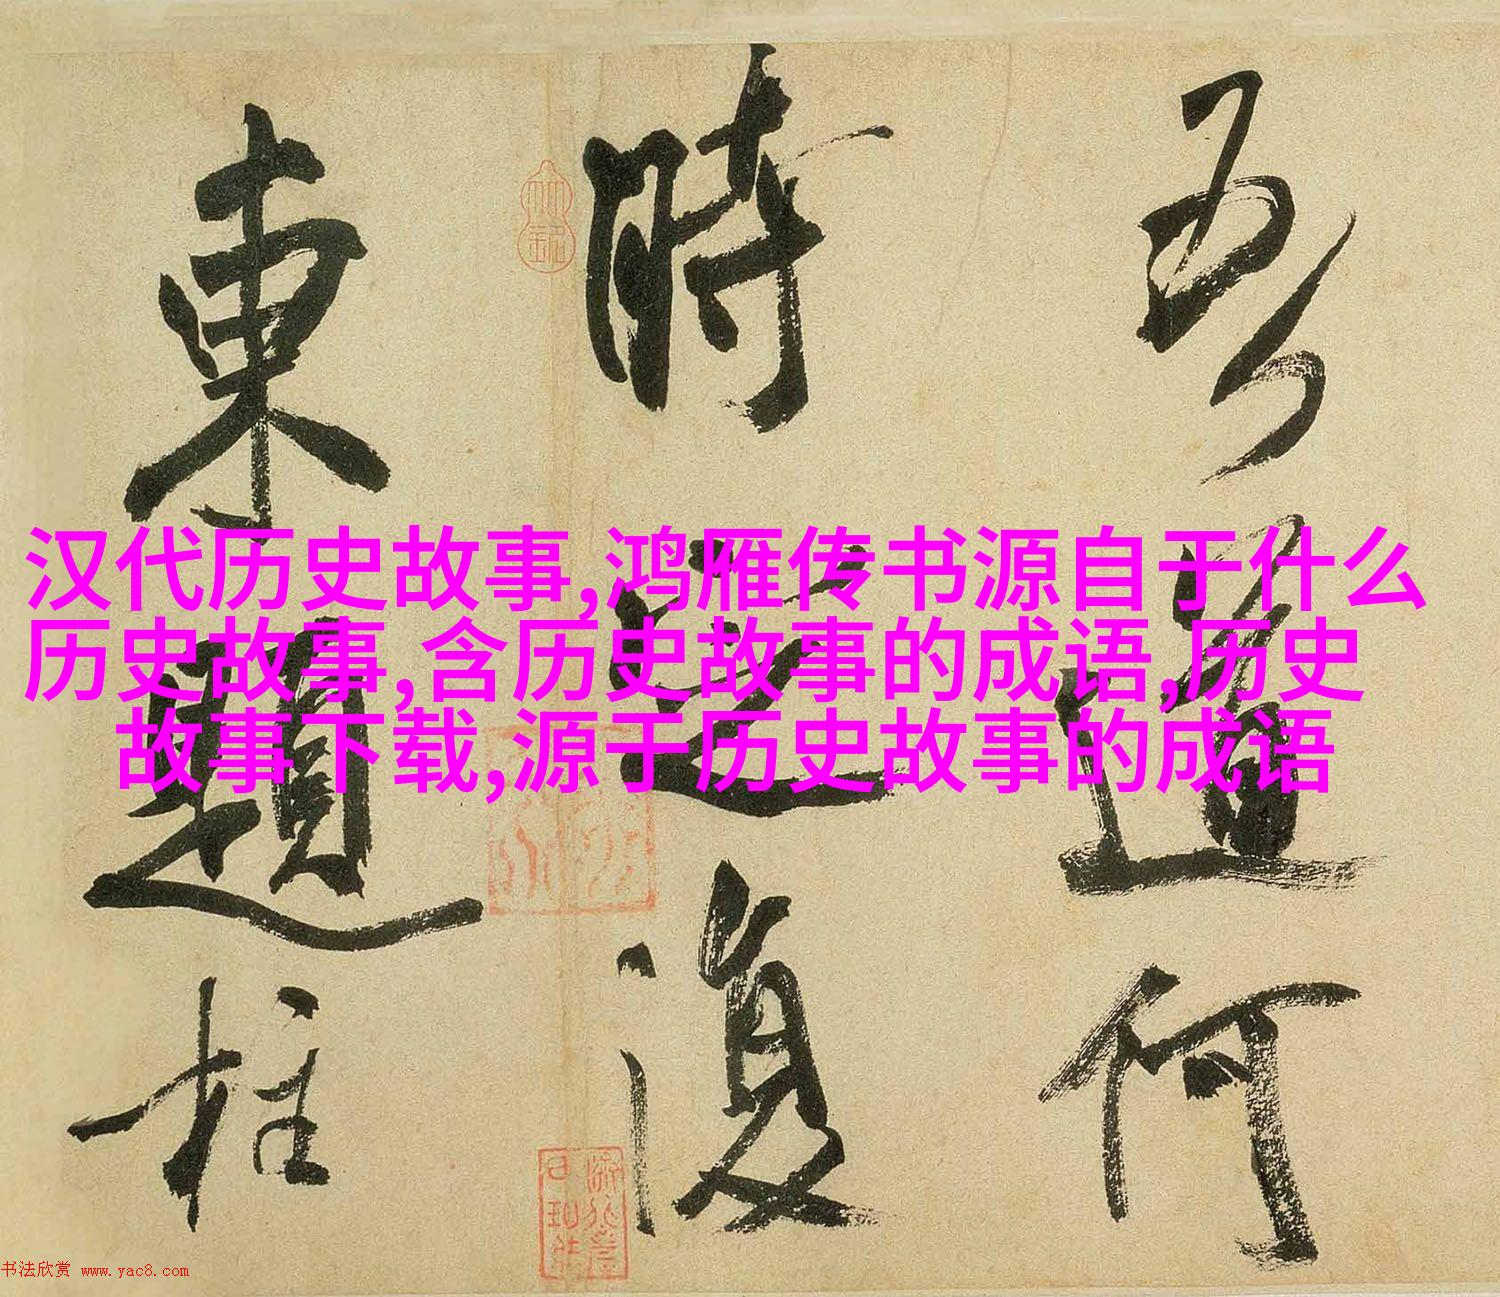 吾道何
時定復
東題柱
汉代历史故事,鸿雁传书源自于什么
历史故事,含历史故事的成语,历史
故事下载,源于历史故事的成语
书法欣赏 www.yac8.com